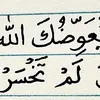 يُعَوِّضُكَ اللّٰه
لَمْ تَخْسَرْ